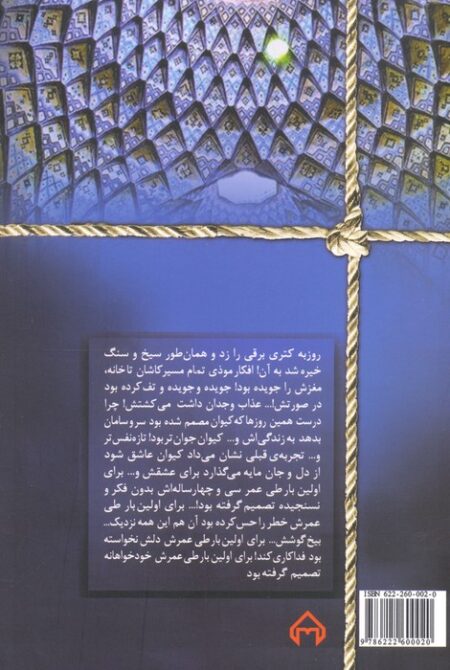 روزبه کتری برقی را زد و همان‌طور سیخ و سنگ
خیره شد به آن! افکار موذی تمام مسیر کاشان تا خانه،
مغزش را جویده بود! جویده و جویده و تف کرده بود
در صورتش!... عذاب وجدان داشت می‌کشتش! چرا
درست همین روزها که کیوان مصمم شده بود سر و سامان
بدهد به زندگی‌اش و... کیوان جوان‌تر بود! تازه‌نفس‌تر
و... تجربه‌ی قبلی نشان می‌داد کیوان عاشق شود
از دل و جان مایه می‌گذارد برای عشقش و... برای
اولین بار طی عمر سی و چهارساله‌اش بدون فکر و
نسنجیده تصمیم گرفته بود!... برای اولین بار طی
عمرش خطر را حس کرده بود آن هم این همه نزدیک...
بیخ گوشش... برای اولین بار طی عمرش دلش نخواسته
بود فداکاری کند! برای اولین بار طی عمرش خودخواهانه
تصمیم گرفته بود
ISBN 622-260-002-0
9 786222 600020